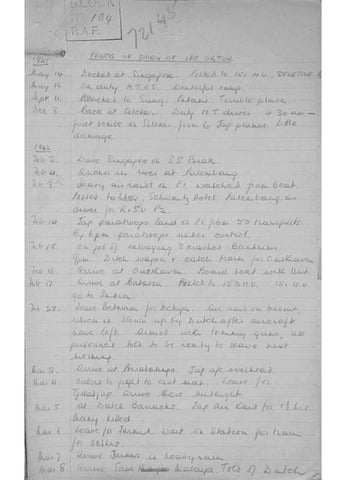 BLOCK
No 104
R.A.F.
PRECIS OF DIARY OF LAC ORTON
1941
May 14. Docked at Singapore. Posted to 151 M.U., SELETAR
May 16 On duty M.T.R.S. Wonderful camp.
Sept 11 Attached to Sungi Patani. Terrible place
Dec 8 Back at Seletar. Duty M.T. driver
first bombs on Seletar from 6 Jap planes. Little
damage.
1942
Feb 2. Leave Singapore on S.S. Perak.
Feb 4. Anchor in river at Palembang
Feb 9 Heavy air raids on P.1. watched from boat
Posted to Hotel Palembang as
driver for R.S.U. P2.
Feb 14. Jap paratroops land on P.1. from 50 transports.
By 6pm paratroops under control.
Feb 15. On job of salvaging 3 crashed Blenheims.
9pm. Ditch wagon & catch train for Oosthaven
Feb 16 Arrive at Oosthaven. Board boat with Unit
Feb 17 Arrive at Batavia. Posted to 153 M.U. 151 M.U.
go to India.
Feb 28. Leave Batavia for Jokja. Air raid on drome,
which is blown up by Dutch after aircraft
have left. Armed with tommy guns, all
personnel told to be ready to leave next
morning.
Mar 3. Arrive at Jap a/c overhead.
Mar 4. Orders to fight to last man. Leave for
Tjilatjap arrive there midnight
Mar 5 at Dutch Barracks. Jap air Raid for 1½ hrs.
Many killed.
Mar 6 Leave for Wait on Station for train
for 26 hrs.
Mar 7 Arrive in heavy rain
Mar 8. Arrive Tasik Malaya Told of Dutch